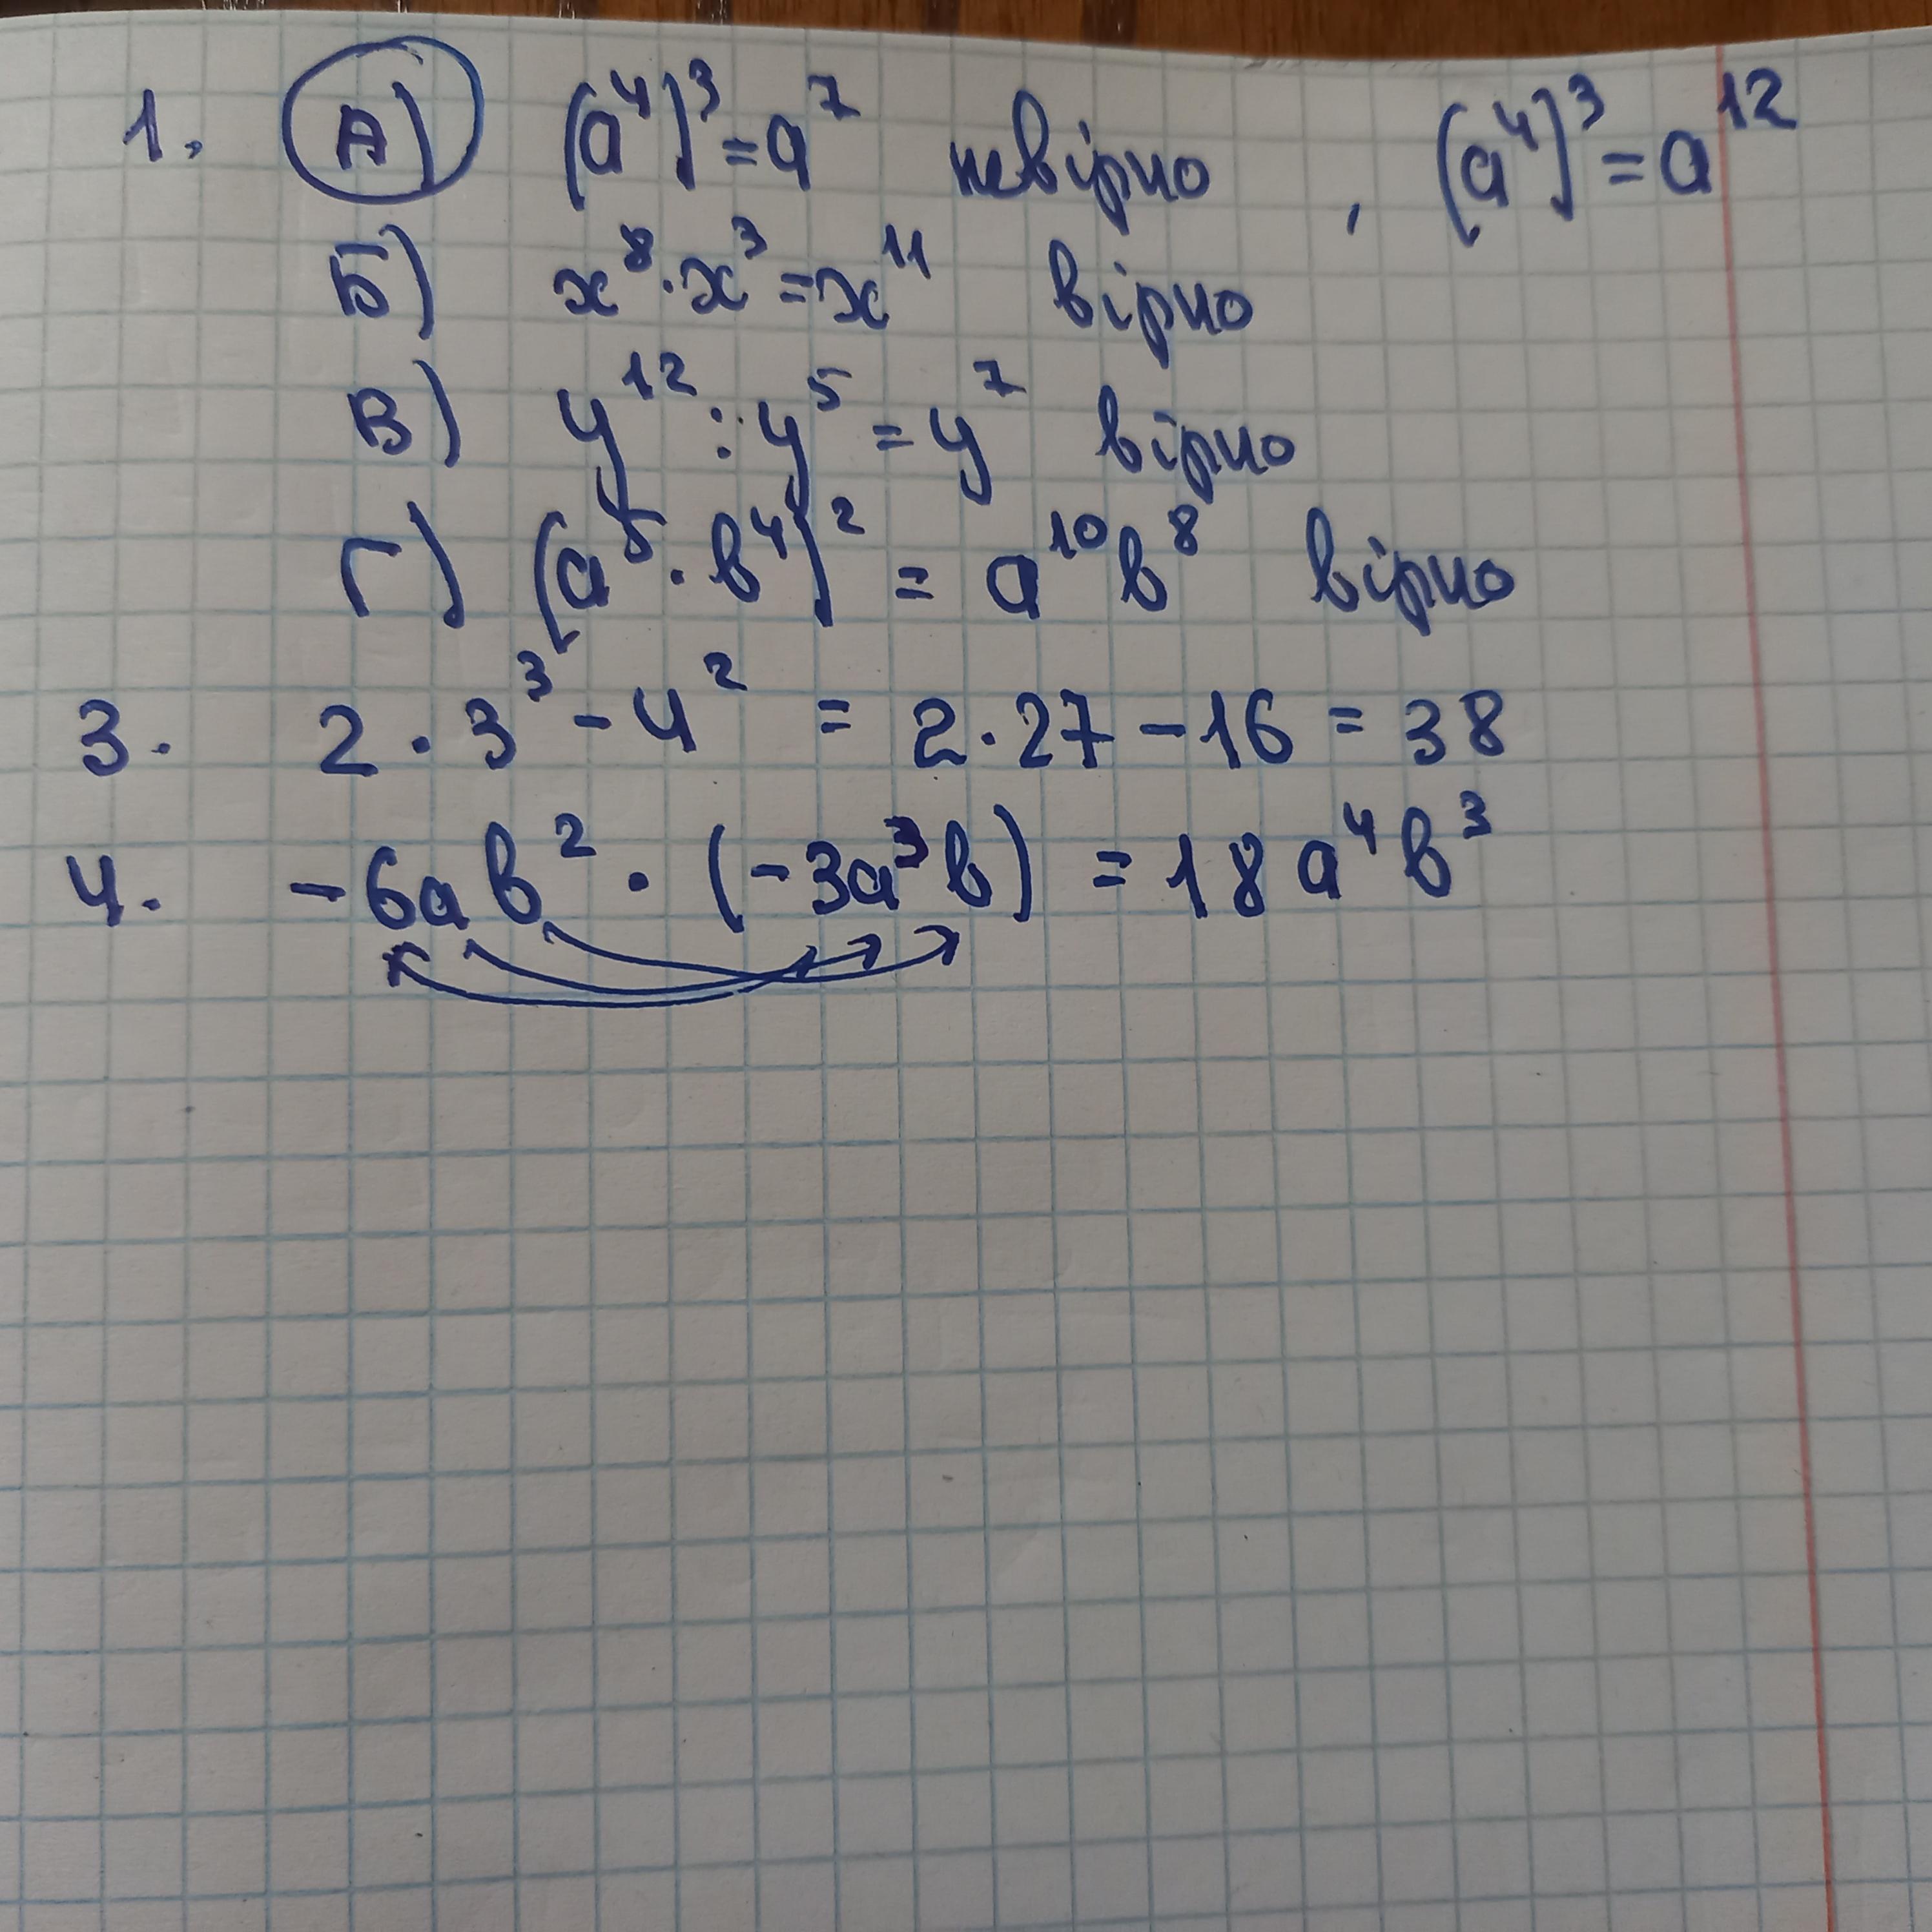 1. А) (a⁴)³ = a⁷ невірно , (a⁴)³ = a¹²
Б) x⁸ · x³ = x¹¹ вірно
В) y¹² : y⁵ = y⁷ вірно
Г) (a⁵ · b⁴)² = a¹⁰b⁸ вірно
3. 2 · 3³ - 4² = 2 · 27 - 16 = 38
4. -6ab² · (-3a³b) = 18a⁴b³